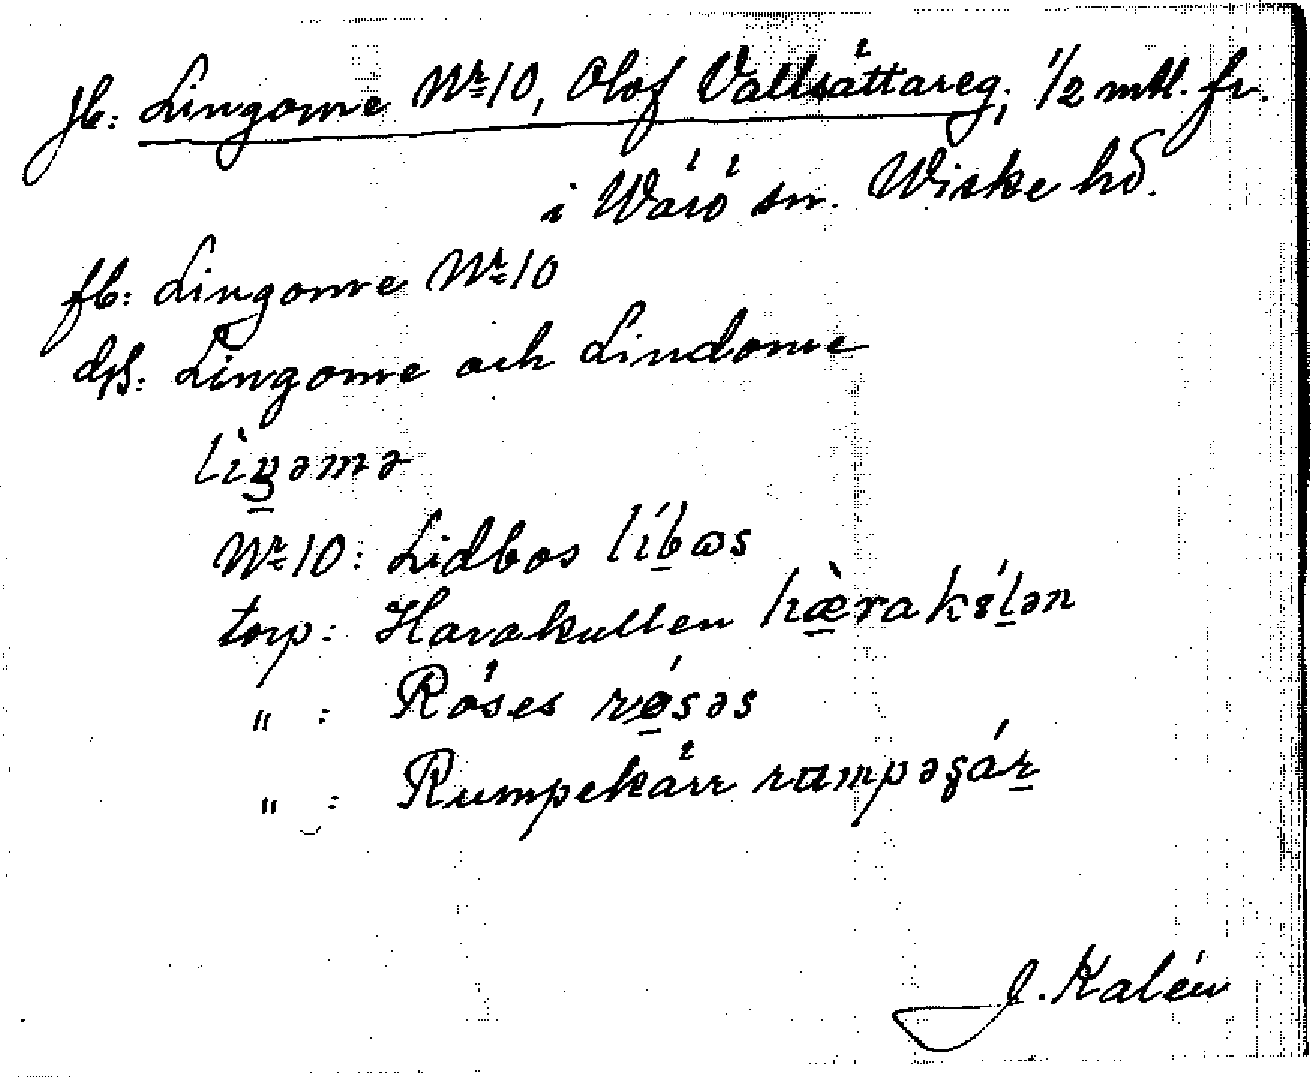 jb: Lingome Nr 10, Olof Vallsåttareg; 1/2 mtl. fr.
i Wärö sn. Wiske hd.
fb: Lingome Nr 10
dpf: Lingome och Lindome
lìŋəmə
Nr 10: Lidbos líbωs
torp: Harakullen hæ̀rakślən
" : Röses røśəs
" : Rumpekärr rumpəʂár
J. Kalén